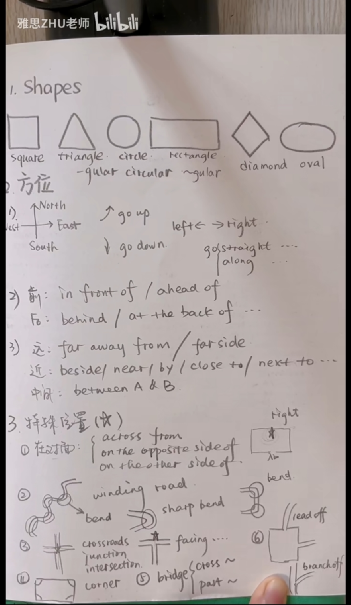 雅思ZHU老师 bilibili
1. Shapes
square triangle circle rectangle diamond oval
-gular circular ~gular
2. 方位
1) North
West East ↗ go up left ← → right
South ↓ go down go straight ...
along
2) 前: in front of / ahead of
后: behind / at the back of ...
3) 远: far away from / far side
近: beside / near / by / close to / next to ...
中间: between A & B
3. 特殊位置 (☆)
① 在对面: across from
on the opposite side of
on the other side of
right
② winding road
bend sharp bend
bend
③ crossroads
junction
intersection
facing ...
⑥ lead off
branch off
④ corner ⑤ bridge cross ~
past ~